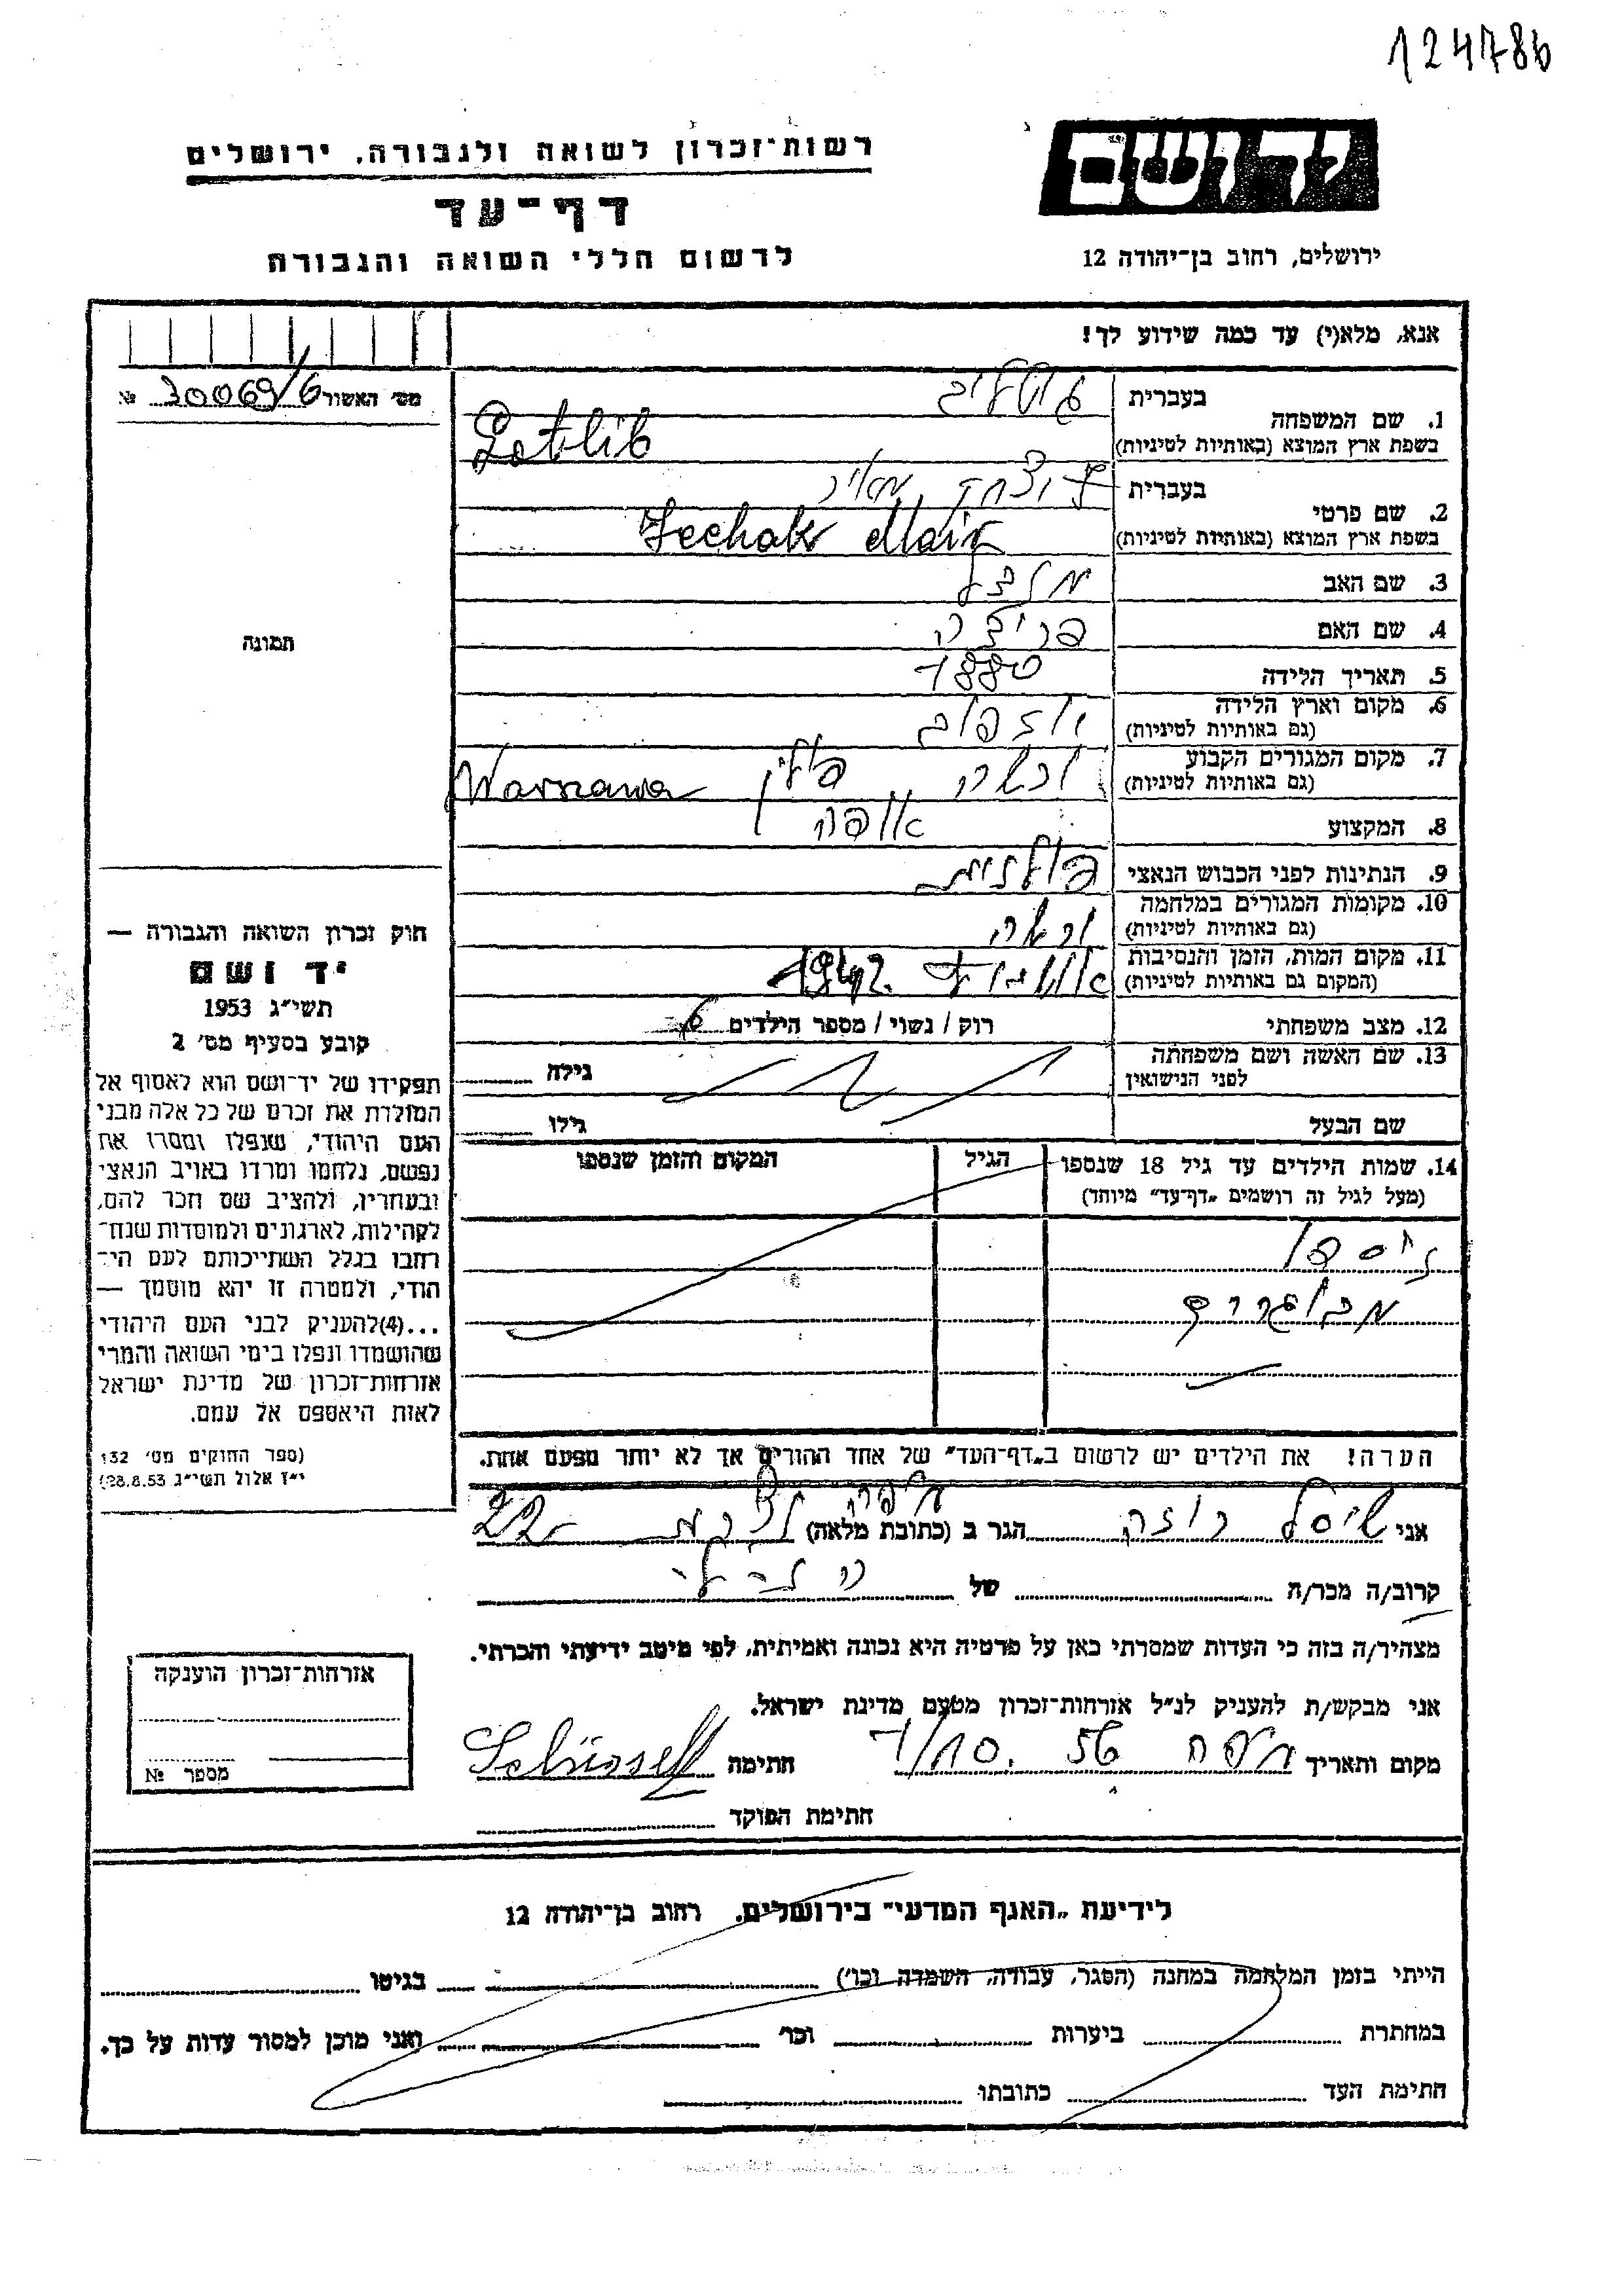 124786
יד ושם
ירושלים, רחוב בן־יהודה 12
רשות־זכרון לשואה ולגבורה, ירושלים
דף־עד
לרשום חללי השואה והגבורה
אנא, מלא(י) עד כמה שידוע לך!
מס׳ האשור 30069/6 №
תמונה
1. שם המשפחה
בעברית גוטליב
בשפת ארץ המוצא (באותיות לטיניות) Gotlib
2. שם פרטי
בעברית יצחק מאיר
בשפת ארץ המוצא (באותיות לטיניות) Icchak Mair
3. שם האב
4. שם האם
5. תאריך הלידה 1880
6. מקום וארץ הלידה
(גם באותיות לטיניות)
7. מקום המגורים הקבוע ורשה פולין Warszawa
(גם באותיות לטיניות)
8. המקצוע אופה
9. הנתינות לפני הכבוש הנאצי פולנית
10. מקומות המגורים במלחמה ורשה
(גם באותיות לטיניות)
11. מקום המות, הזמן והנסיבות 1942
(המקום גם באותיות לטיניות)
12. מצב משפחתי רוק / נשוי / מספר הילדים 6
13. שם האשה ושם משפחתה
לפני הנישואין
גילה
שם הבעל גילו
14. שמות הילדים עד גיל 18 שנספו
(מעל לגיל זה רושמים „דף־עד״ מיוחד)
הגיל
המקום והזמן שנספו
ניספו
מבוגרים
הערה! את הילדים יש לרשום ב„דף־העד״ של אחד ההורים אך לא יותר מפעם אחת.
חוק זכרון השואה והגבורה —
יד ושם
תשי״ג 1953
קובע בסעיף מס׳ 2
תפקידו של יד־ושם הוא לאסוף אל
המולדת את זכרם של כל אלה מבני
העם היהודי, שנפלו ומסרו את
נפשם, נלחמו ומרדו באויב הנאצי
ובעוזריו, ולהציב שם וזכר להם,
לקהילות, לארגונים ולמוסדות שנח־
רבו בגלל השתייכותם לעם הי־
הודי, ולמטרה זו יהא מוסמך —
...(4)להעניק לבני העם היהודי
שהושמדו ונפלו בימי השואה והמרי
אזרחות־זכרון של מדינת ישראל
לאות היאספם אל עמם.
(ספר החוקים מס׳ 132
י״ז אלול תשי״ג 28.8.53)
אני שיסל רוזה הגר ב (כתובת מלאה) חיפה 22
קרוב/ה מכר/ה של
מצהיר/ה בזה כי העדות שמסרתי כאן על פרטיה היא נכונה ואמיתית, לפי מיטב ידיעתי והכרתי.
אני מבקש/ת להעניק לנ״ל אזרחות־זכרון מטעם מדינת ישראל.
מקום ותאריך חיפה 1/10. 56 חתימה Schüssel
חתימת הפוקד
אזרחות־זכרון הוענקה
מספר №
לידיעת „האגף המדעי״ בירושלים. רחוב בן־יהודה 12
הייתי בזמן המלחמה במחנה (הסגר, עבודה, השמדה וכו׳) בגיטו
במחתרת ביערות וכו׳ ואני מוכן למסור עדות על כך.
חתימת העד כתובתו